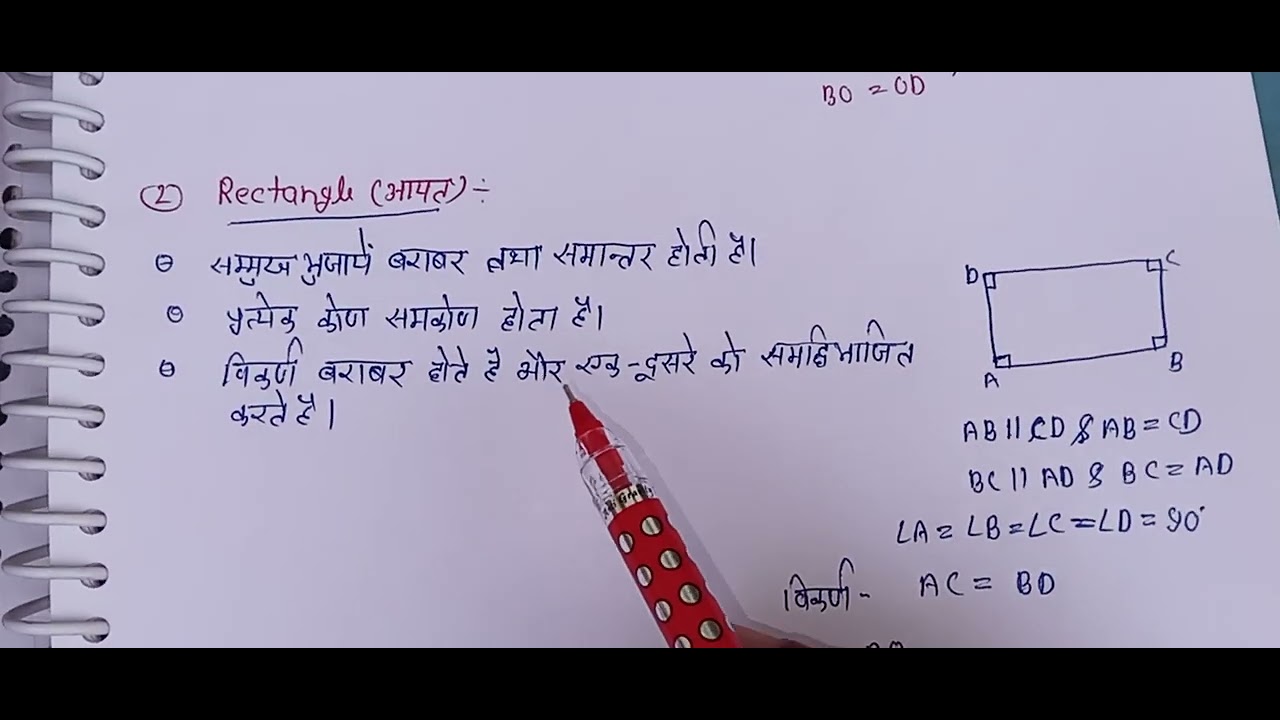 BO = OD
② Rectangle (आयत) ÷
सम्मुख भुजायें बराबर तथा समान्तर होती है।
प्रत्येक कोण समकोण होता है।
विकर्ण बराबर होते है और एक-दूसरे को समद्विभाजित
करते है।
D C
A B
AB || CD & AB = CD
BC || AD & BC = AD
∠A = ∠B = ∠C = ∠D = 90°
विकर्ण - AC = BD